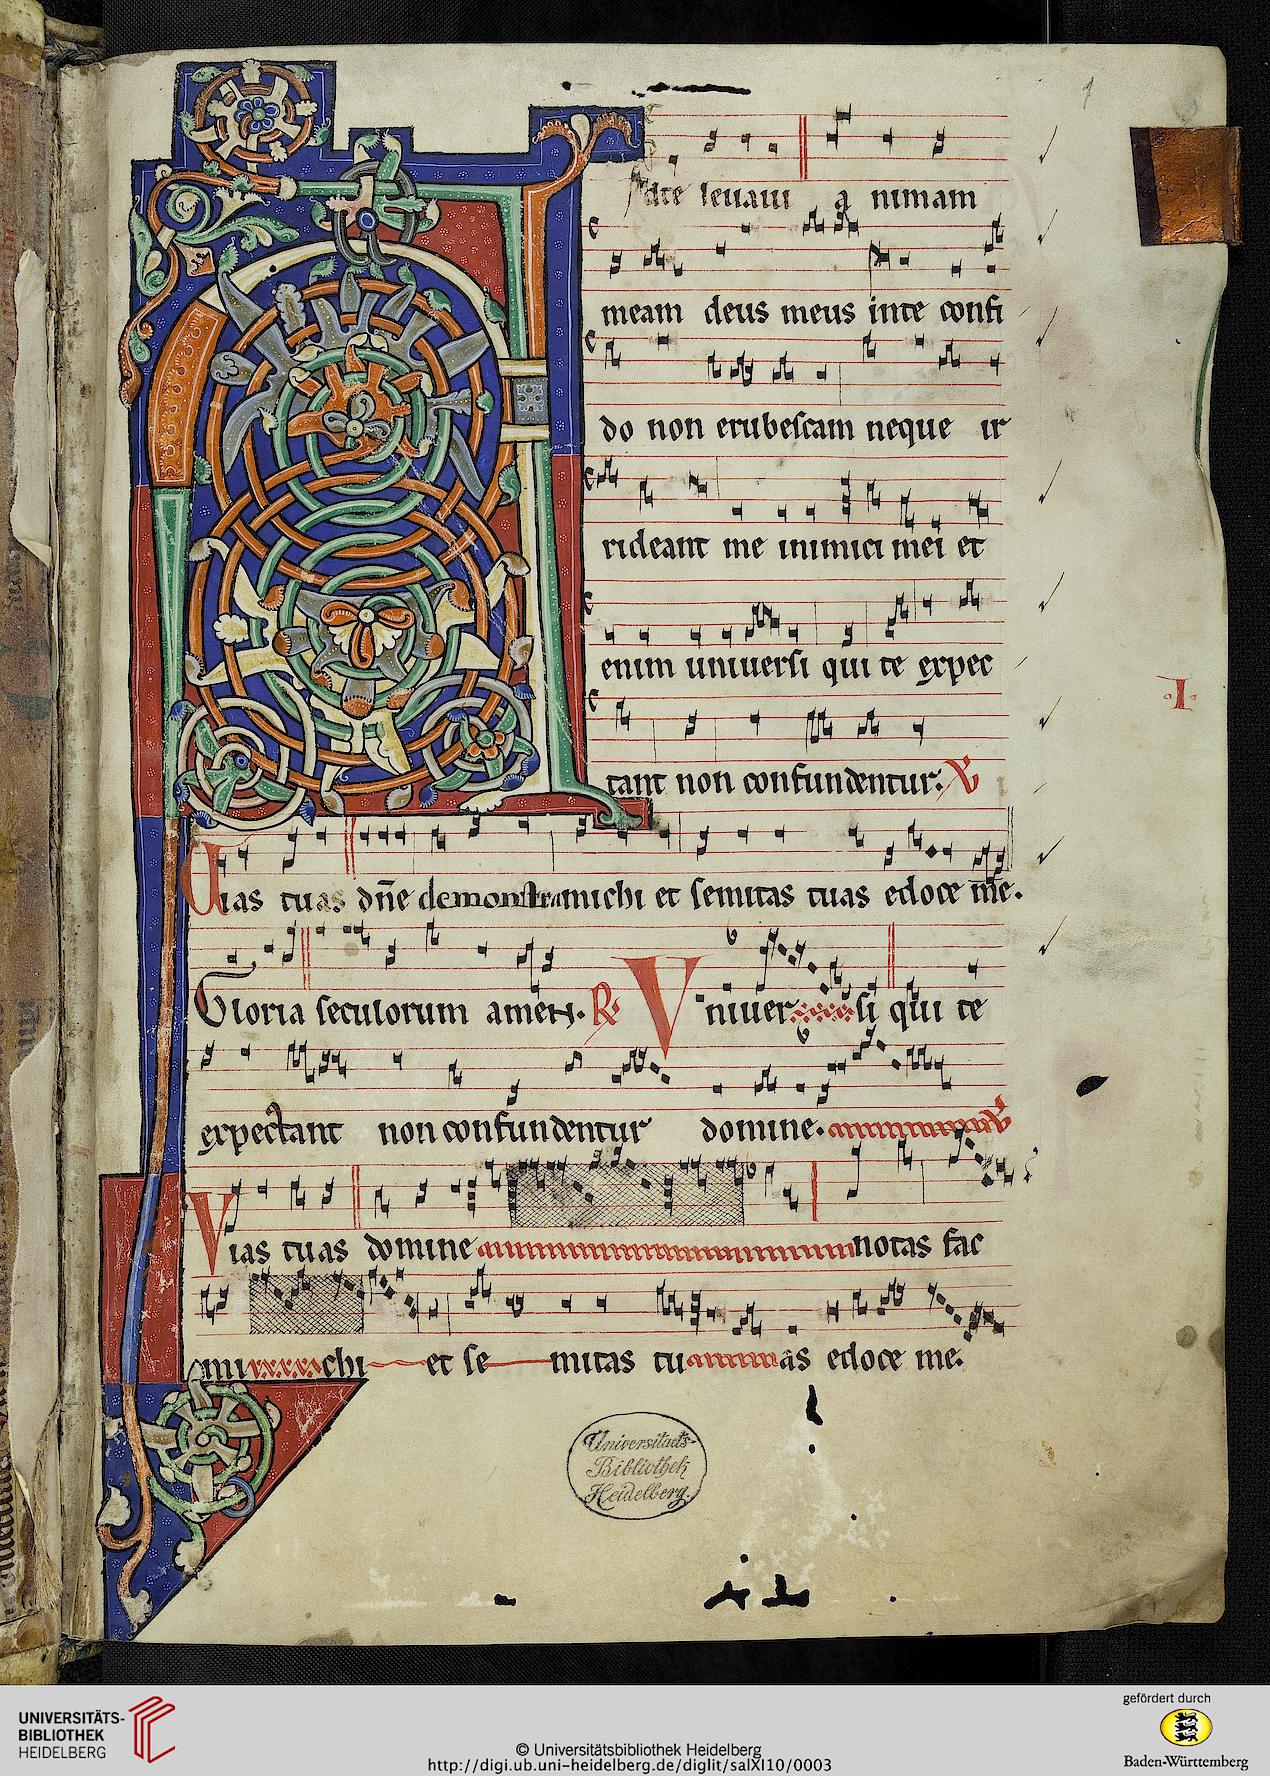 1
Adte leuaui a nimam
meam deus meus inte confi
do non erubescam neque ir
rideant me inimici mei et
enim uniuersi qui te expec
I
tant non confundentur. V
Uias tuas dñe demonstra michi et semitas tuas edoce me.
Gloria seculorum amen. R Vniuer si qui te
expectant non confundentur domine. V
Vias tuas domine notas fac
mi chi et se mitas tu as edoce me.
Universitaets-
Bibliothek
Heidelberg.
UNIVERSITÄTS-
BIBLIOTHEK
HEIDELBERG
© Universitätsbibliothek Heidelberg
http://digi.ub.uni-heidelberg.de/diglit/salXI10/0003
gefördert durch
Baden-Württemberg